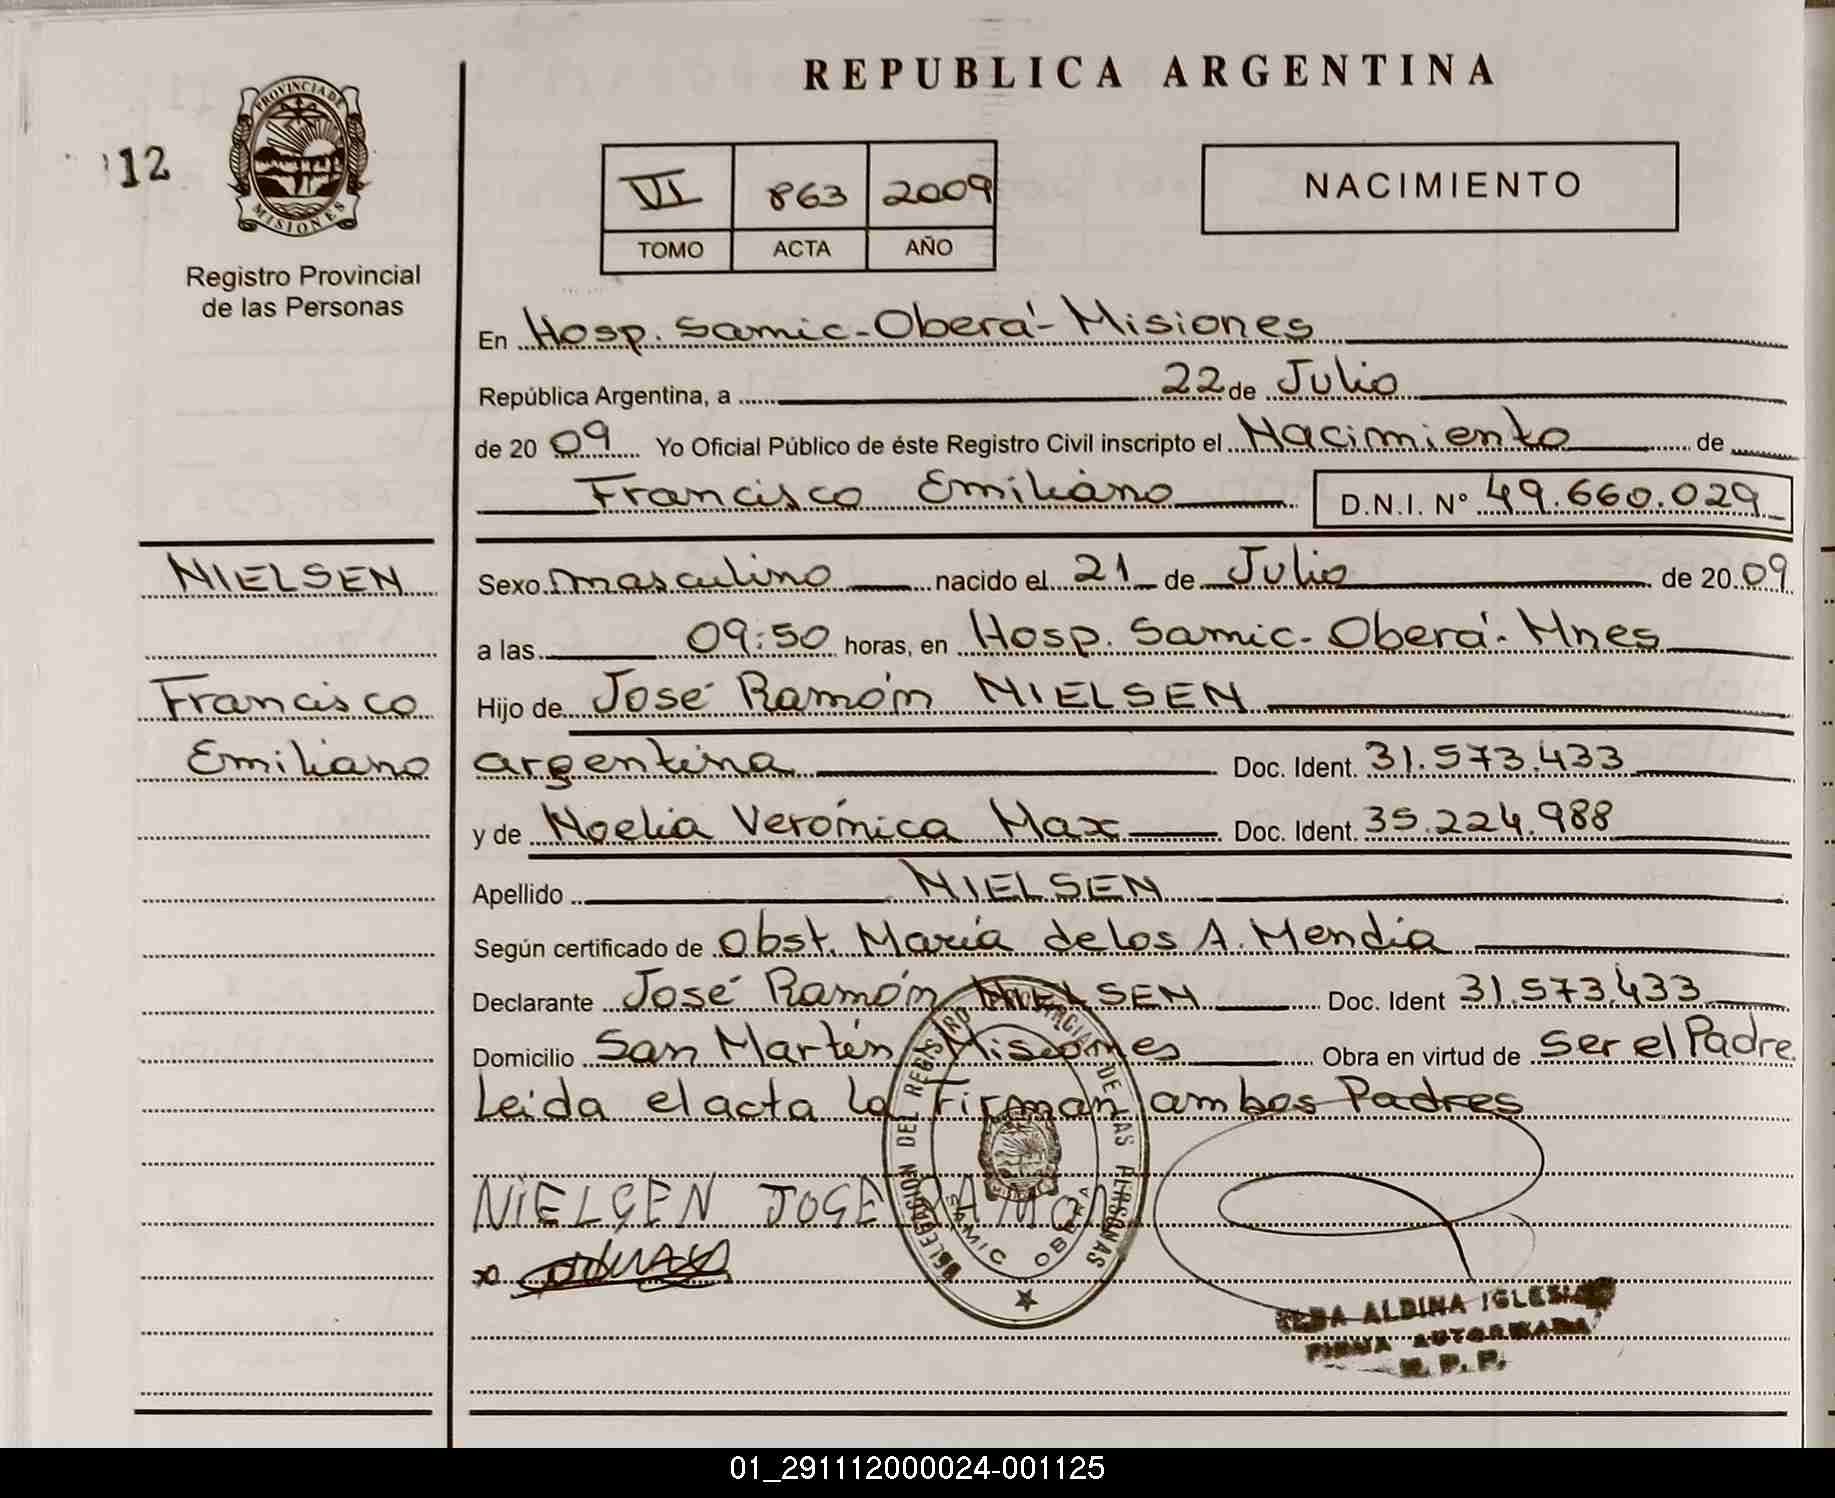 REPUBLICA ARGENTINA
12
PROVINCIA DE
MISIONES
Registro Provincial
de las Personas
VI 863 2009
TOMO ACTA AÑO
NACIMIENTO
En Hosp. Samic-Oberá-Misiones
República Argentina, a 22 de Julio
de 2009 Yo Oficial Público de éste Registro Civil inscripto el Nacimiento de
Francisco Emiliano D.N.I. Nº 49.660.029
NIELSEN
Francisco
Emiliano
Sexo masculino nacido el 21 de Julio de 2009
a las 09:50 horas, en Hosp. Samic-Oberá-Mnes
Hijo de José Ramón NIELSEN
argentina Doc. Ident. 31.573.433
y de Noelia Verónica Max Doc. Ident. 35.224.988
Apellido NIELSEN
Según certificado de Obst. María de los A. Mendia
Declarante José Ramón NIELSEN Doc. Ident 31.573.433
Domicilio San Martín Misiones Obra en virtud de Ser el Padre
Leída el acta la Firman ambos Padres
NiELSEN JOSE RAMON
DELEGACION DEL REGISTRO PROVINCIAL DE LAS PERSONAS
SAMIC OBERA
ALDINA IGLESIAS
FIRMA AUTORIZADA
R. P. P.
01_291112000024-001125